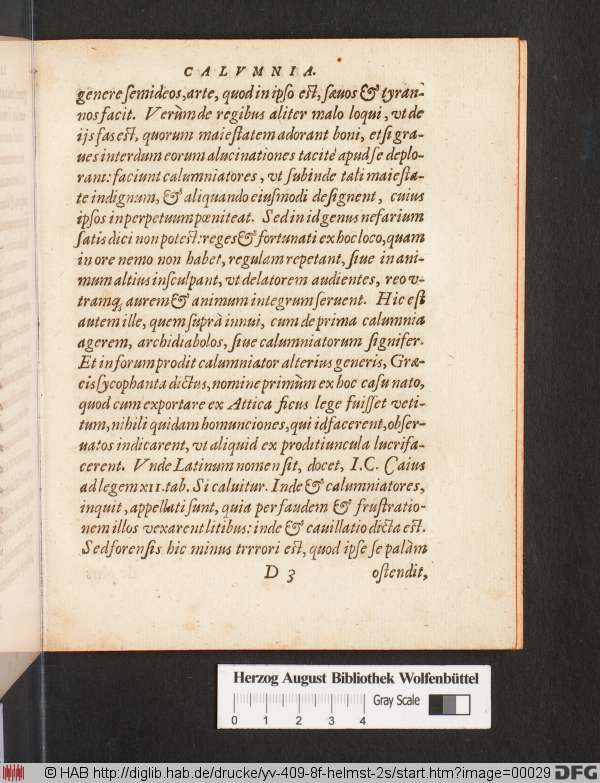 CALVMNIA.
genere semideos, arte, quod in ipso est, sæuos & tyran-
nos facit. Verùm de regibus aliter malo loqui, vt de
ijs fas est, quorum maiestatem adorant boni, etsi gra-
ues interdum eorum alucinationes tacitè apud se deplo-
rant: faciunt calumniatores, vt subinde tali maiesta-
te indignum, & aliquando eiusmodi designent, cuius
ipsos in perpetuum pœniteat. Sed in id genus nefarium
satis dici non potest: reges & fortunati ex hoc loco, quam
in ore nemo non habet, regulam repetant, siue in ani-
mum altius insculpant, vt delatorem audientes, reo v-
tramq; aurem & animum integrum seruent. Hic est
autem ille, quem suprà innui, cum de prima calumnia
agerem, archidiabolos, siue calumniatorum signifer.
Et in forum prodit calumniator alterius generis, Græ-
cis sycophanta dictus, nomine primùm ex hoc casu nato,
quod cum exportare ex Attica ficus lege fuisset veti-
tum, nihili quidam homunciones, qui id facerent, obser-
uatos indicarent, vt aliquid ex proditiuncula lucrifa-
cerent. Vnde Latinum nomen sit, docet, I.C. Caius
ad legem XII. tab. Si caluitur. Inde & calumniatores,
inquit, appellati sunt, quia per faudem & frustratio-
nem illos vexarent litibus: inde & cauillatio dicta est.
Sed forensis hic minus trrrori est, quod ipse se palàm
D 3 ostendit,
Herzog August Bibliothek Wolfenbüttel
Gray Scale
0 1 2 3 4
© HAB http://diglib.hab.de/drucke/yv-409-8f-helmst-2s/start.htm?image=00029 DFG